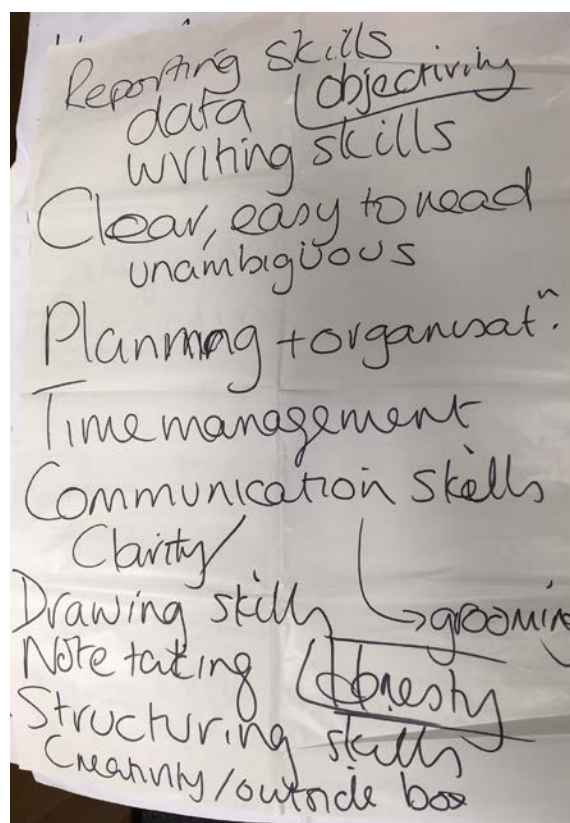 Reporting skills
data objectivity
writing skills
Clear, easy to read
unambiguous
Planning + organisatⁿ.
Time management
Communication skills
Clarity
Drawing skills → grooming
Note taking honesty
Structuring skills
Creativity / outside box